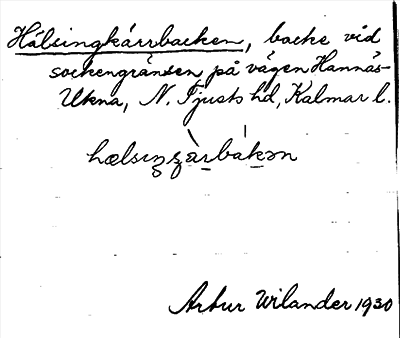 Hälsingkärrbacken, backe vid
sockengränsen på vägen Hannäs-
Ukna, N. Tjusts hd, Kalmar l.
Arthur Wilander 1930